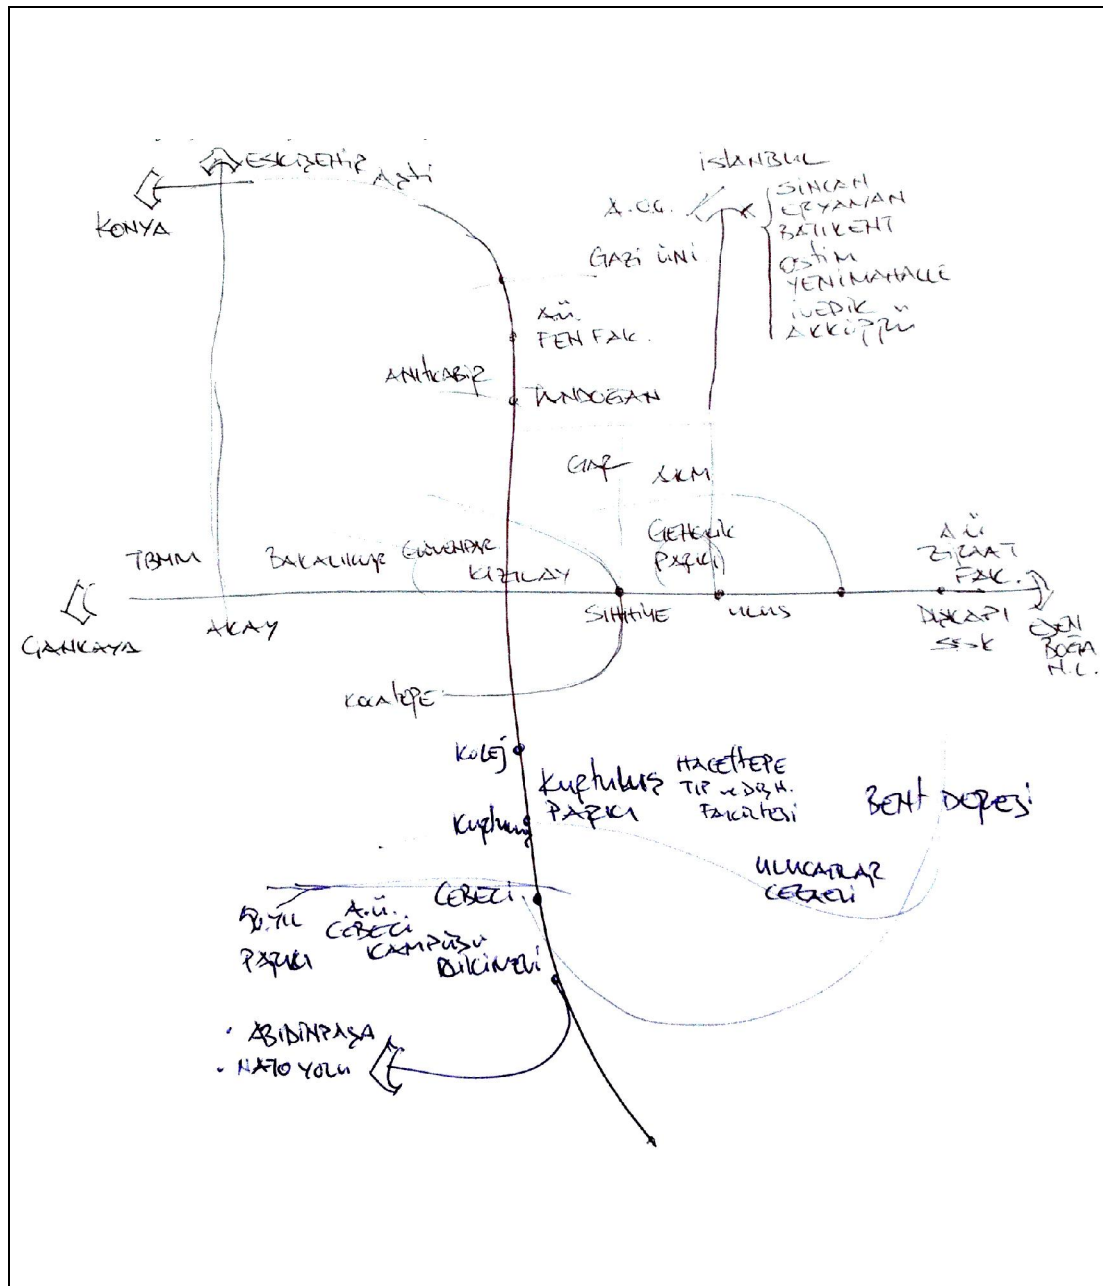 ESKİŞEHİR
AŞTİ
KONYA
İSTANBUL
A.O.Ç.
SİNCAN
ERYAMAN
BATIKENT
OSTİM
YENİMAHALLE
İVEDİK
AKKÖPRÜ
GAZİ ÜNİ
A.Ü.
FEN FAK.
ANITKABİR
TANDOĞAN
GAR
AKM
GENÇLİK
PARKI
A.Ü
ZİRAAT
FAK.
TBMM
BAKANLIKLAR
GÜVENPAR
KIZILAY
SIHHİYE
ULUS
DIŞKAPI
SSK
ESEN
BOĞA
H.L.
ÇANKAYA
AKAY
KOCATEPE
KOLEJ
KURTULUŞ
PARKI
HACETTEPE
TIP ve DİŞ H.
FAKÜLTESİ
BENT DERESİ
Kurtuluş
ULUCANLAR
CEZAEVİ
CEBECİ
PARKI
A.Ü.
CEBECİ
KAMPÜSÜ
DİKİMEVİ
• ABİDİNPAŞA
• NATO YOLU